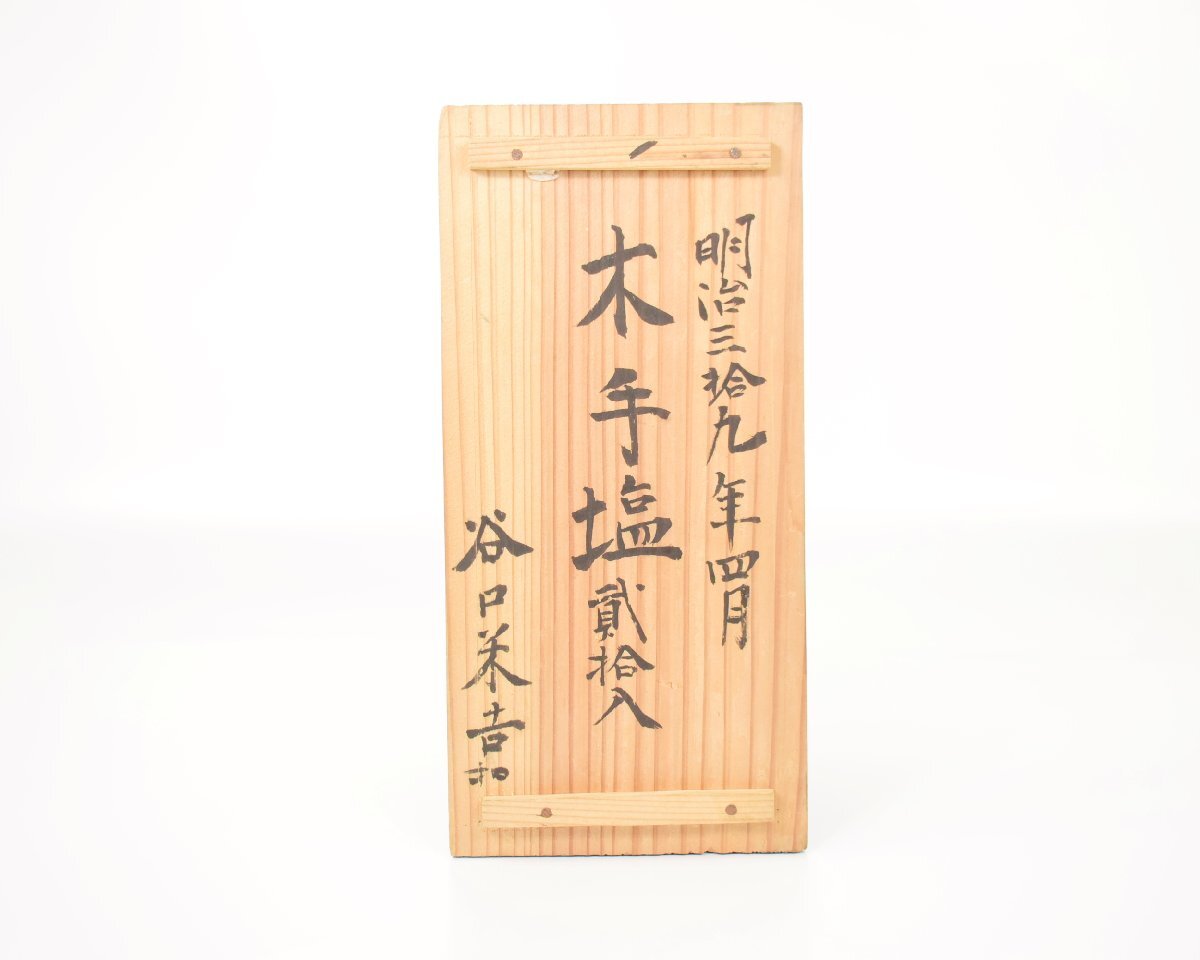 明治三拾九年四月
木手塩貳拾入
谷口米吉